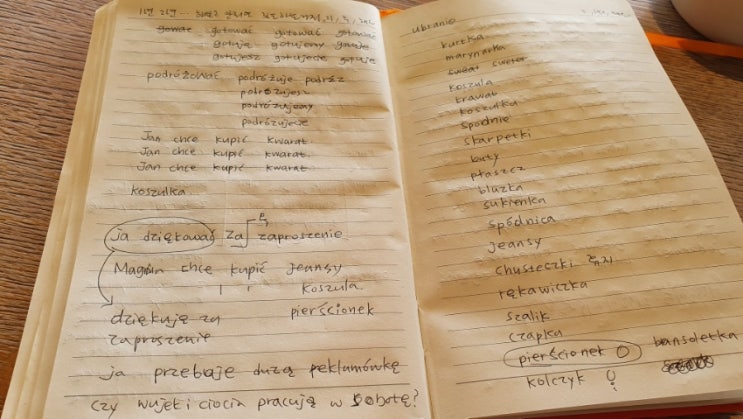 gować gotować gotować gotować
gotują gotujemy gotuje
gotujesz gotujecie gotuje
podróżować podróżuje podróż
podróżujesz
podróżujemy
podróżujecie
Jan chce kupić kwarat.
Jan chce kupić kwarat.
Jan chce kupić kwarat.
koszulka
ja dziękować za zaproszenie
Magda chce kupić jeansy
koszula.
dziękuję za pierścionek
zaproszenie
ja przebaje dużą reklamówkę
czy wujek i ciocia pracują w sobotę?
ubranie
kurtka
marynarka
sweat sweter
koszula
krawat
koszulka
spodnie
skarpetki
buty
płaszcz
bluzka
sukienka
spódnica
jeansy
chusteczki 휴지
rękawiczka
szalik
czapka
pierścionek bansoletka
kolczyk